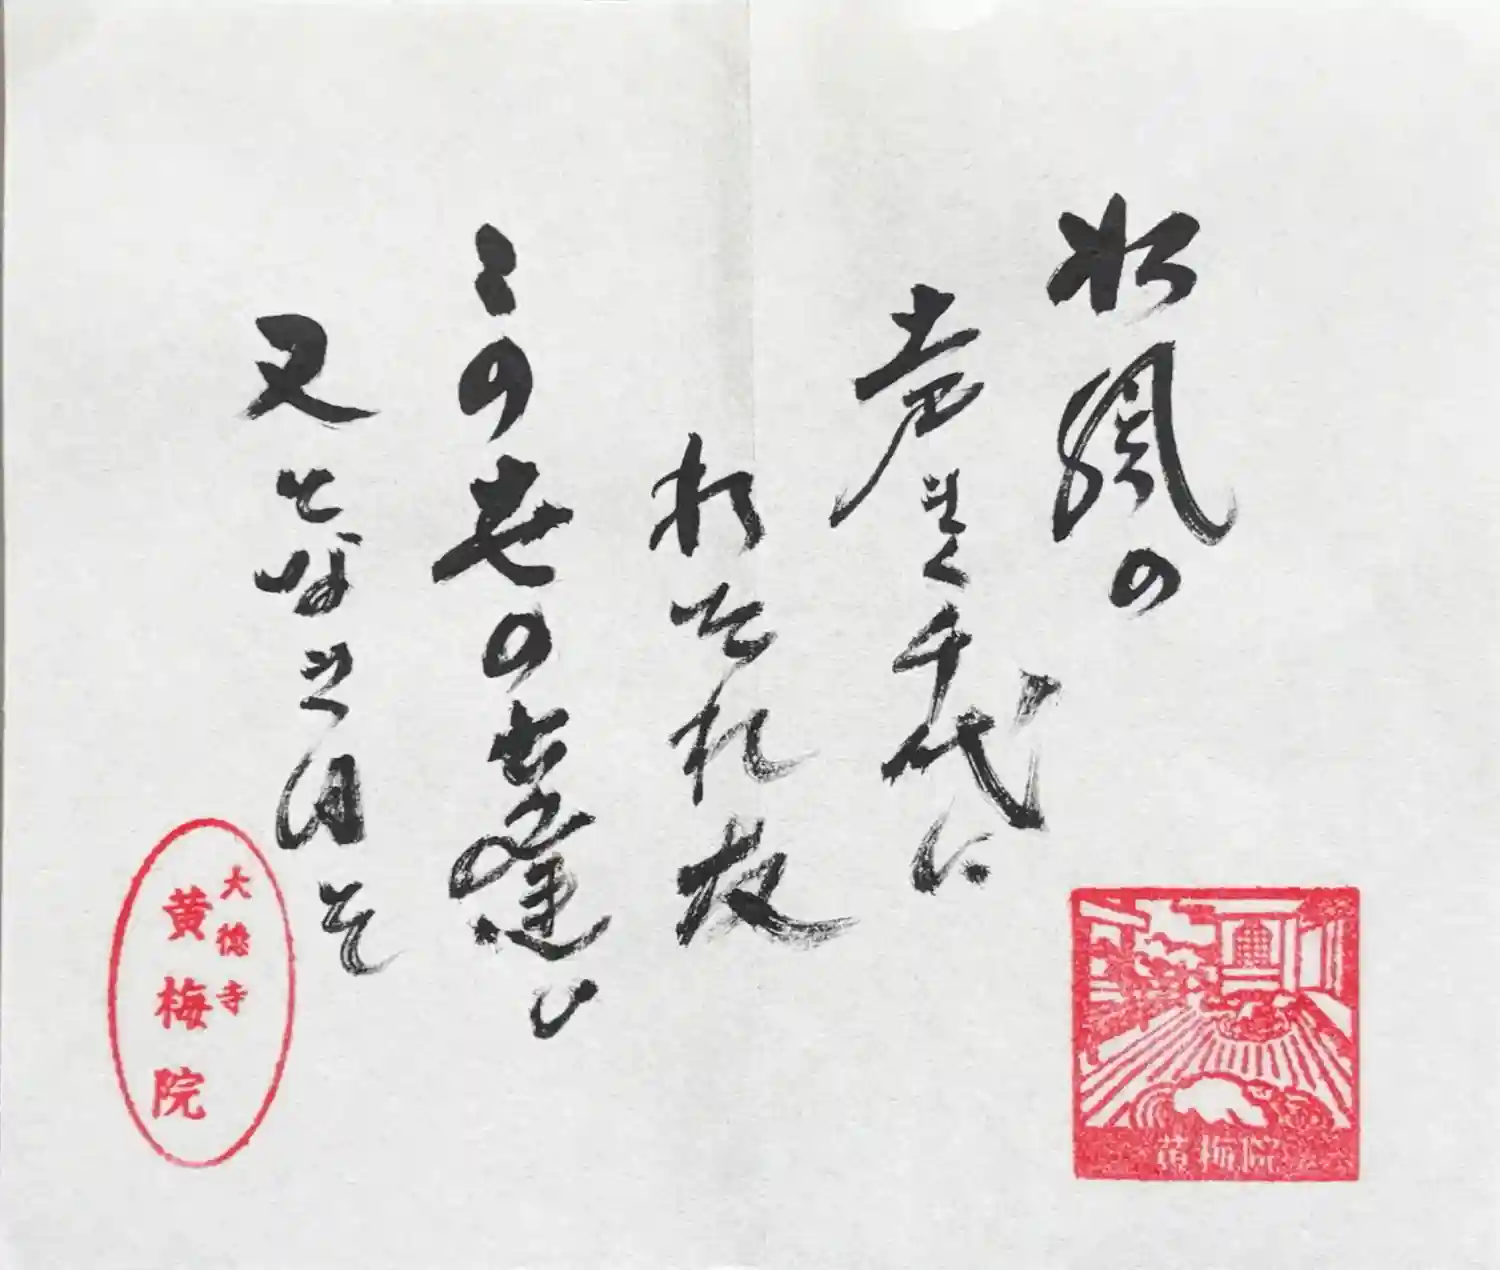 松風の
声きく千代に
れ友
この世の逢ひ
又となき月を
大徳寺
黄梅院
黄梅院